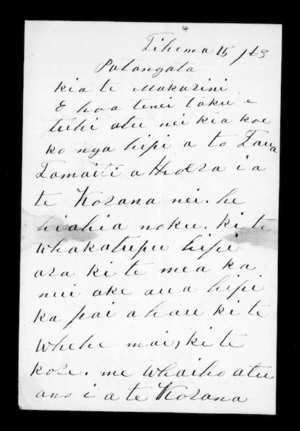 Tihema 15 /63
Patangata
kia te Makarini
E hoa tenei taku e
tuhi atu nei kia koe
ko nga hipi a to Taua
Tamaiti a Hoera i a
te Korana nei. he
hiahia noku. ki te
whakatupu hipi
ara ki te mea ka
nui ake aua hipi
ka pai ahau ki te
whehe mai, ki te
kore. me whaiho atu
ano i a te Korana